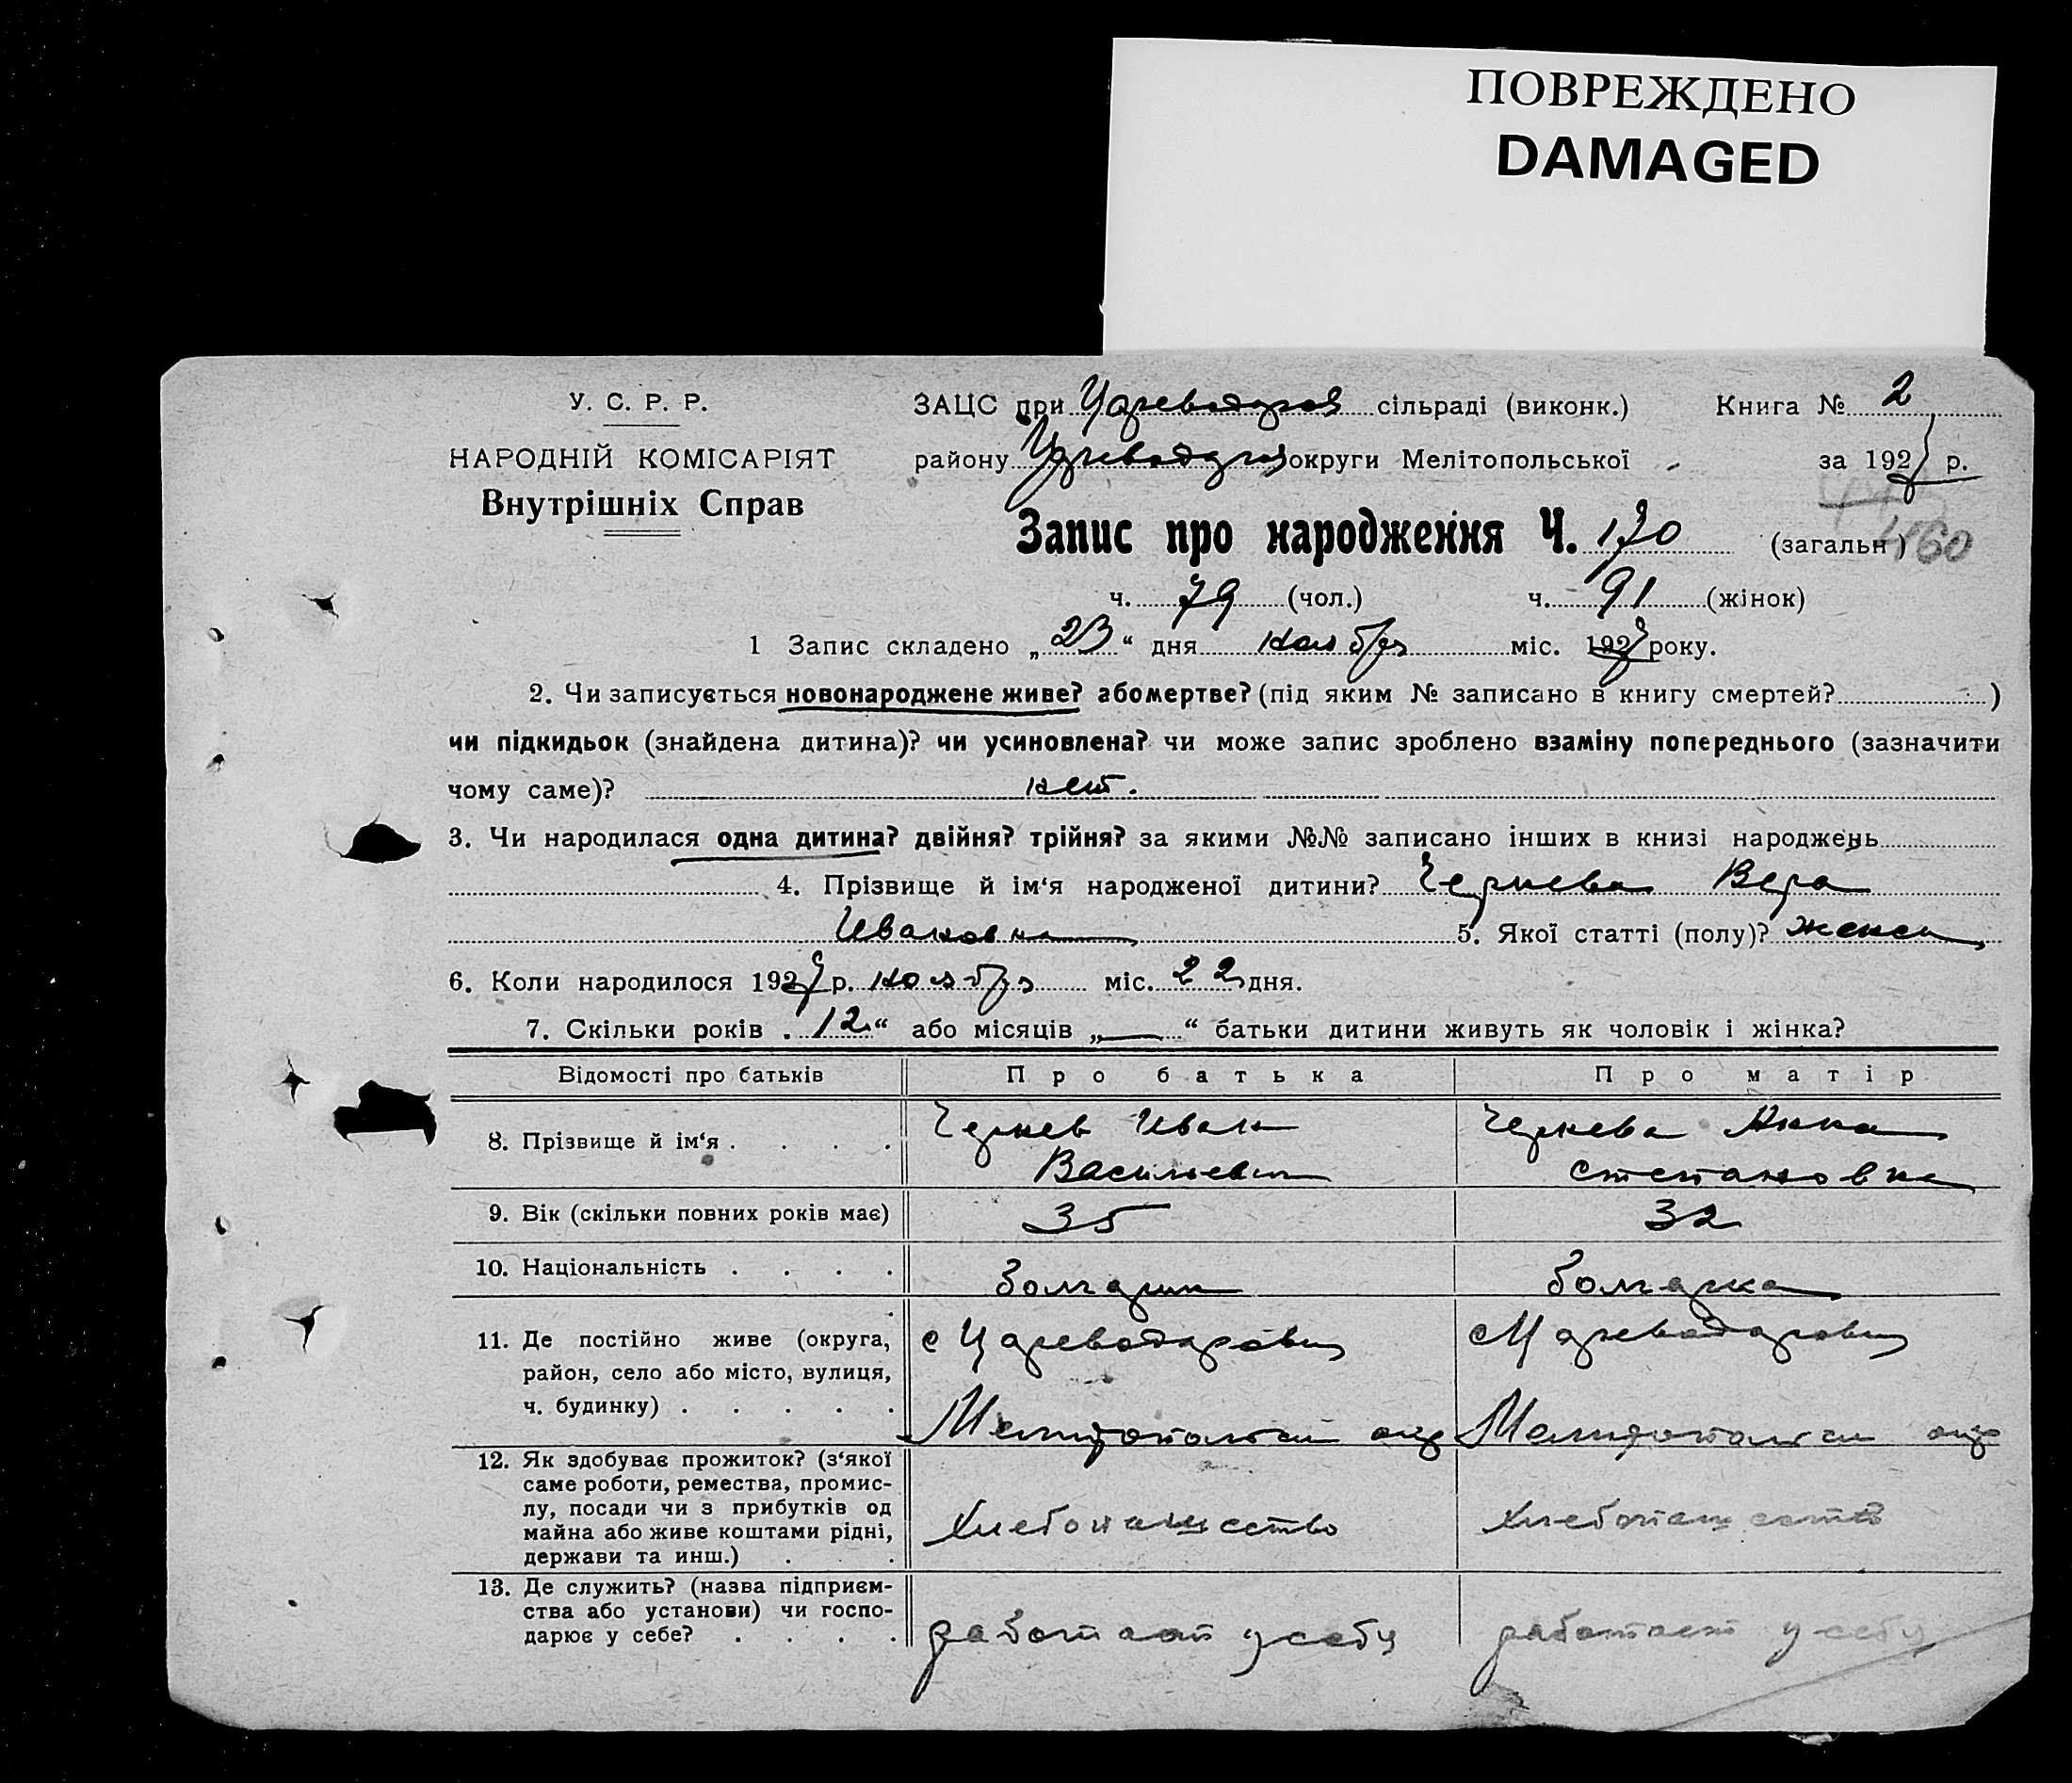 ПОВРЕЖДЕНО
DAMAGED
У. С. Р. Р.
НАРОДНІЙ КОМІСАРІЯТ
Внутрішніх Справ
ЗАЦС при Цареводаров сільраді (виконк.) Книга № 2
району Цареводаров округи Мелітопольської за 192 р.
Запис про народження Ч. 170 (загальн) 460
ч. 79 (чол.) ч. 91 (жінок)
1 Запис складено „23“ дня ноября міс. 192 року.
2. Чи записується новонароджене живе? або мертве? (під яким № записано в книгу смертей? )
чи підкидьок (знайдена дитина)? чи усиновлена? чи може запис зроблено взаміну попереднього (зазначити
чому саме)? нет.
3. Чи народилася одна дитина? двійня? трійня? за якими №№ записано інших в книзі народжень
4. Прізвище й ім‘я народженої дитини? Чернева Вера
Ивановна 5. Якої статті (полу)? женск
6. Коли народилося 192 р. ноября міс. 22 дня.
7. Скільки років „12“ або місяців „—“ батьки дитини живуть як чоловік і жінка?
Відомості про батьків Про батька Про матір
8. Прізвище й ім‘я . . . . Чернев Иван Чернева Анна
Васильевич Степановна
9. Вік (скільки повних років має) 35 32
10. Національність . . . . болгарин болгарка
11. Де постійно живе (округа, с Цареводаровка с Цареводаровка
район, село або місто, вулиця,
ч. будинку) . . . . . Мелитопольск окр Мелитопольск окр
12. Як здобуває прожиток? (з‘якої
саме роботи, ремества, промис-
лу, посади чи з прибутків од
майна або живе коштами рідні, Хлебопашество Хлебопашество
держави та инш.) . . .
13. Де служить? (назва підприєм-
ства або установи) чи госпо-
дарює у себе? . . . . работает у себя работает у себя